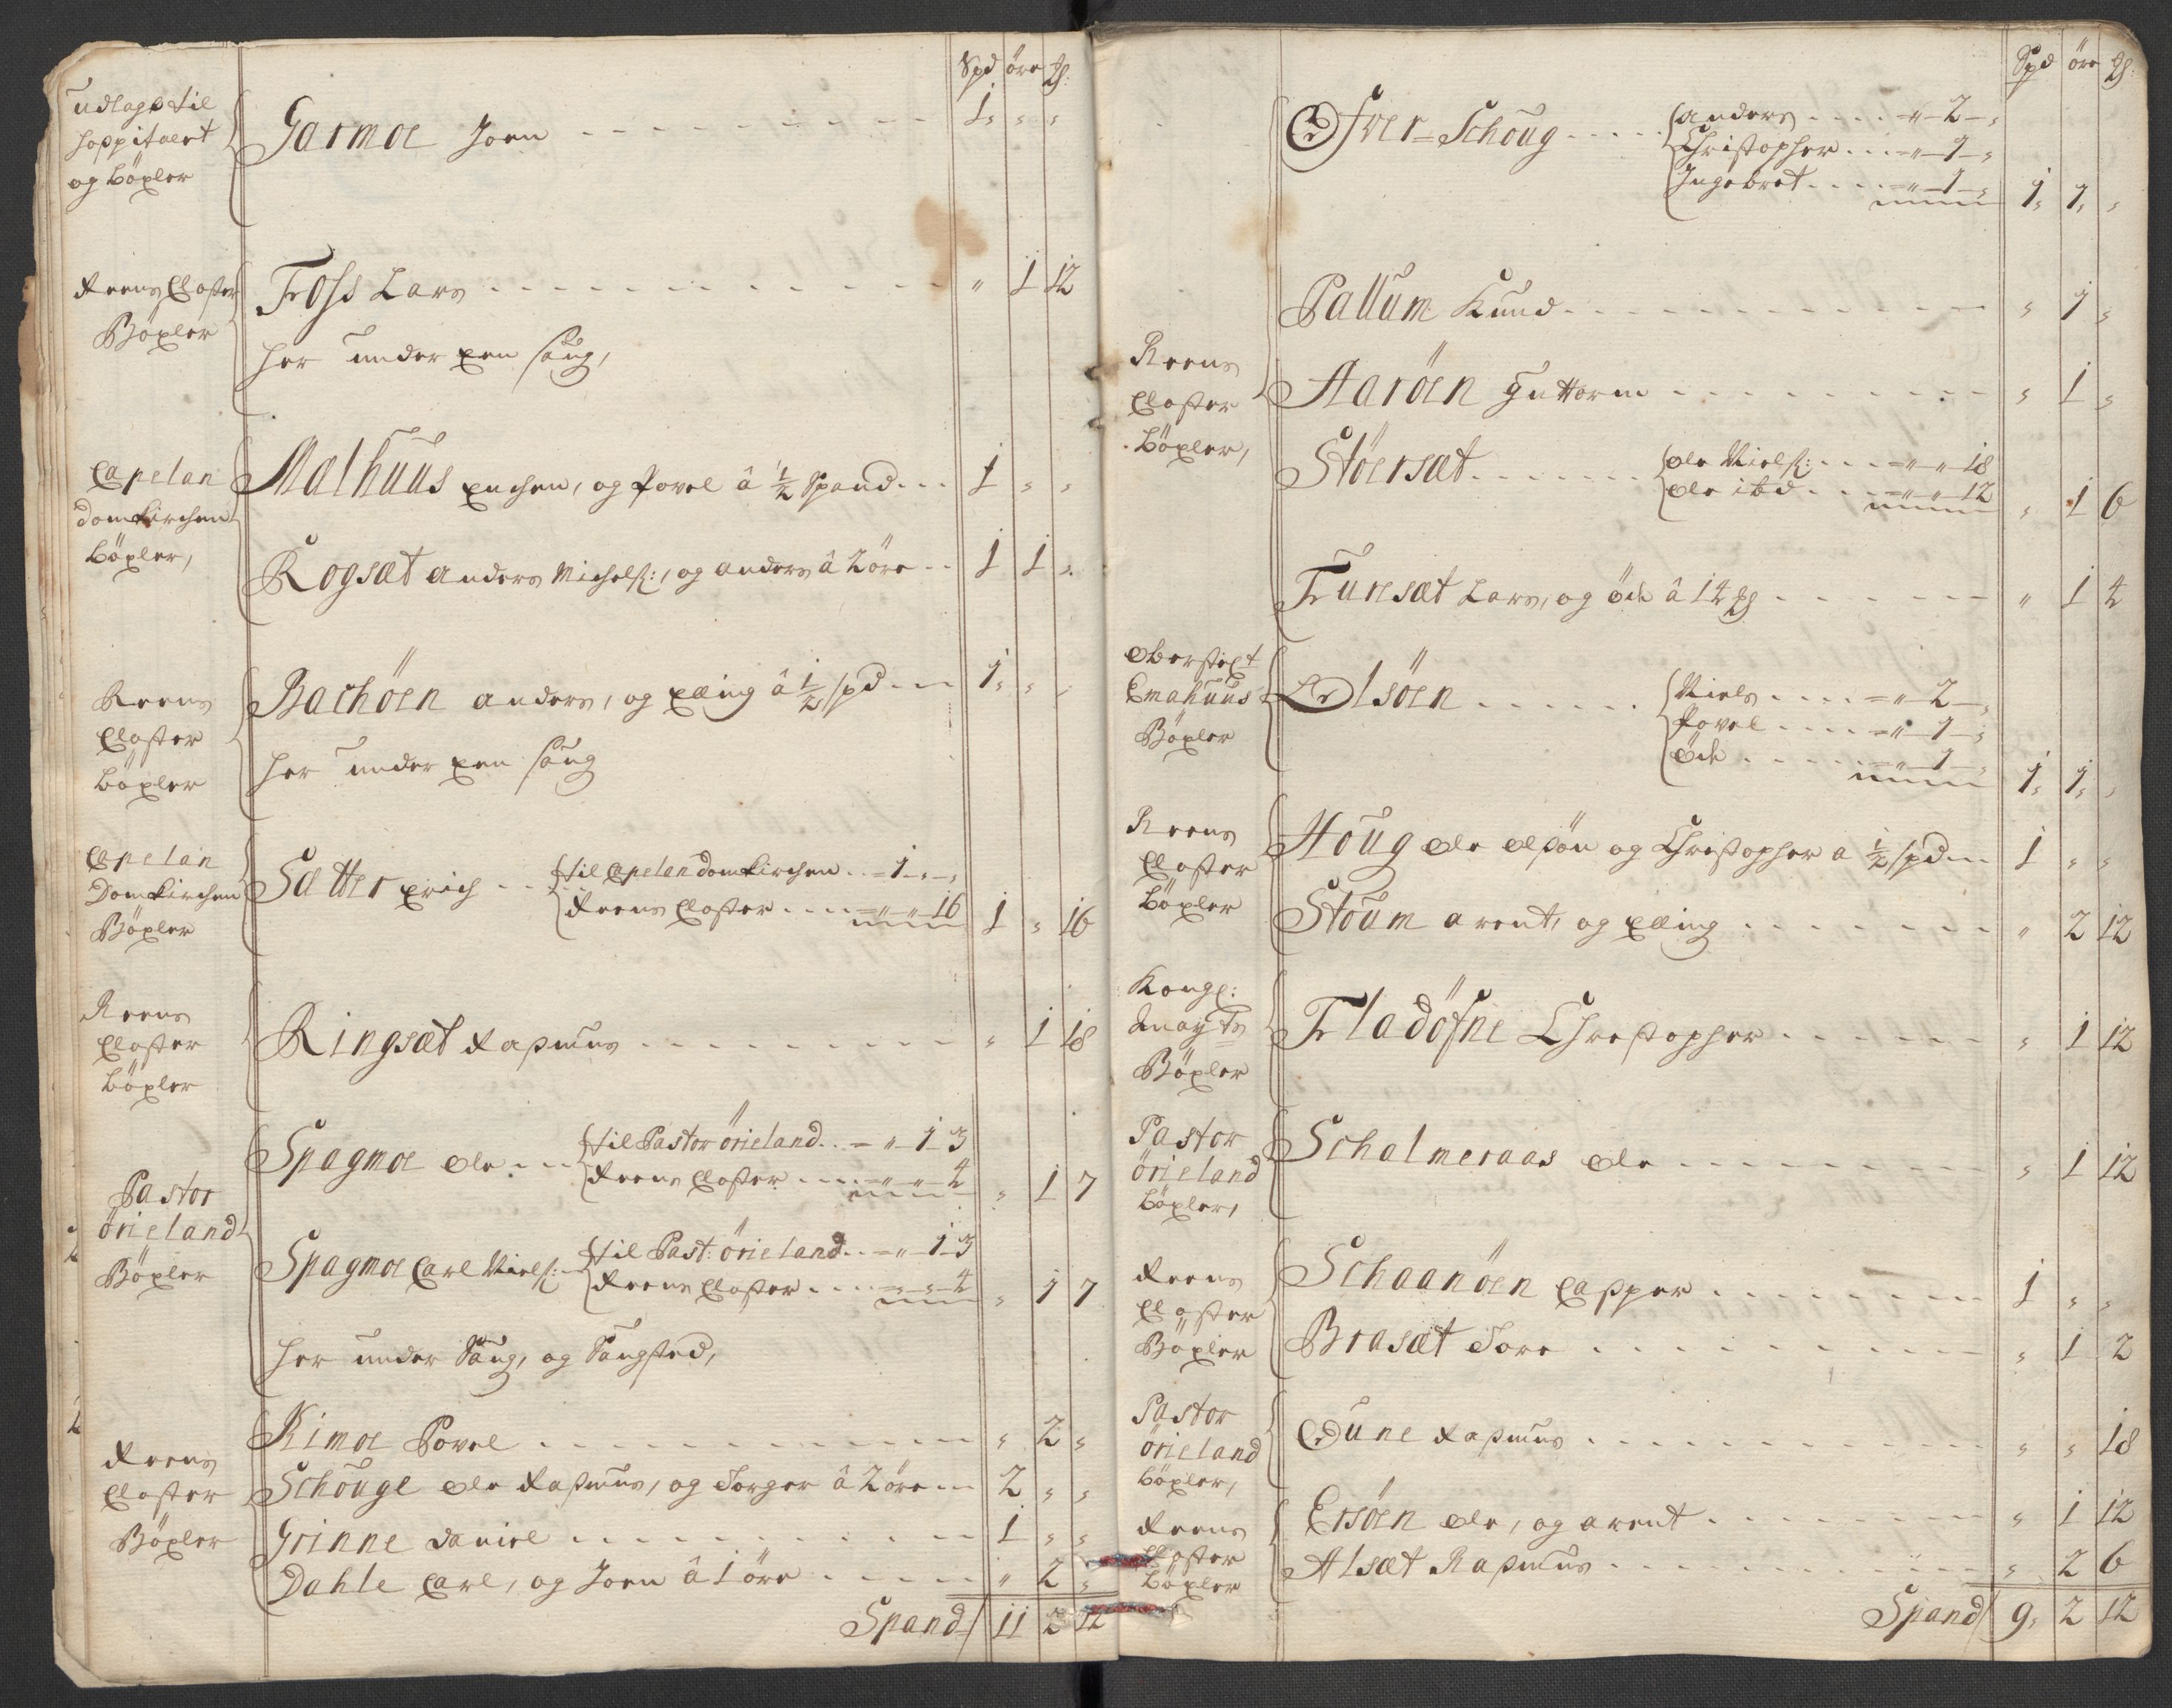 Spd öre
udlagt til
hospitaert
og böxler
Garmoe Joen 1 " "
Reens Closter
Böxler
Foss Lars " 1 12
her under een saug,
Capelan
domkirchen
böxler,
Malhuus enchen, og Povel â ½ Spand 1 " "
Rogsæt anders Michels:, og anders â 2 öre 1 1 "
Reens
Closter
böxler
Bachöen anders, og Elling â ½ spd 1 " "
her under een saug
Capelan
Domkirchen
Böxler
Sætter Erich
til Capelan domkirchen 1 " "
Reens Closter " " 16 1 " 16
Reens
Closter
böxler
Ringsæt Rasmus " 1 18
Pastor
örieland
Böxler
Spagmoe Ole
til Pastor örieland " 1 3
Reens Closter " " 4 " 1 7
Spagmoe Carl Niels:
til Past: örieland " 1 3
Reens Closter " " 4 " 1 7
her under Saug, og Saugsted,
Reens
Closter
Böxler
Rimoe Povel " 2 "
Schouge Ole Rasmus, og Torger â 2 öre 2 " "
Grinne Daniel 1 " "
Dahle Carl, og Joen â 1 öre " 2 "
Spand 11 2 12
Spd öre
Ofver-Schoug
anders " 2 "
Christopher " 1 "
Ingebret " 1 " 1 1 "
Pallum Knud " 1 "
Reens
Closter
böxler,
Aaröen Guttorm " 1 "
Stöersæt
Ole Niels: " " 18
Ole ibd " " 12 " 1 6
Funesæt Lars, og öde â 14 " 1 4
Emahuus
Böxler
Olsöen
Niels " 2 "
Povel " 1 "
öde " 1 " 1 1 "
Reens
Closter
böxler
Houg Ole Olsön og Christopher a ½ spd 1 " "
Stoum arent, og Elling " 2 12
Kongl:
Mayts
Böxler
Fladöfne Christopher " 1 12
Pastor
örieland
böxler,
Schalmeraas Ole " 1 12
Reens
Closter
Böxler
Schaanöen Casper 1 " "
Brasæt Tore " 1 2
Pastor
örieland
böxler,
Dune Rasmus " " 18
Reens
Closter
böxler
Ersöen Ole, og arent " 1 12
Alsæt Rasmus " 2 6
Spand 9 2 12